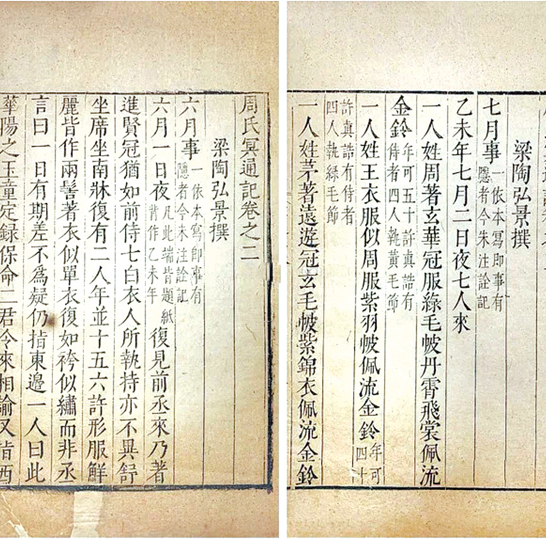 周氏冥通記卷之二
梁陶弘景撰
六月事一依本寫即事有隱者今朱注詮記
六月一日夜凡此端皆題紙背作乙未年復見前丞來乃著
進賢冠猶如前侍七白衣人所執持亦不異舒
坐席坐南牀復有二人年並十五六許形服鮮
麗皆作兩髻著衣似單衣復如袴似繡而非丞
言曰一日有期差不爲疑仍指東邊一人曰此
華陽之玉童定録保命二君令來相諭又指西
梁陶弘景撰
七月事一依本寫即事有隱者今朱注詮記
乙未年七月二日夜七人來
一人姓周著玄華冠服綠毛帔丹霄飛裳佩流
金鈴年可五十許真誥有侍者四人執黃毛節
一人姓王衣服似周服紫羽帔佩流金鈴年可四十
許真誥有侍者四人執綠毛節
一人姓茅著遠遊冠玄毛帔紫錦衣佩流金鈴